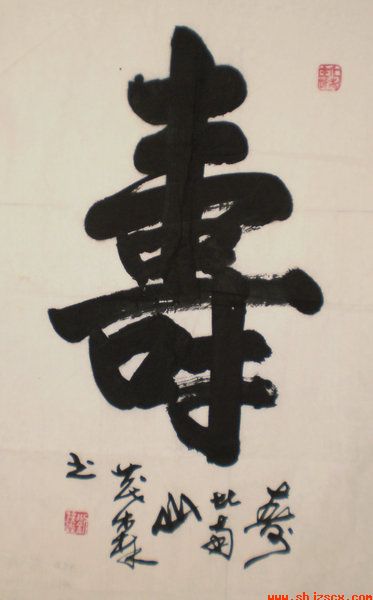 壽
寿
比南
山
茂森
书
www.shjzscx.com